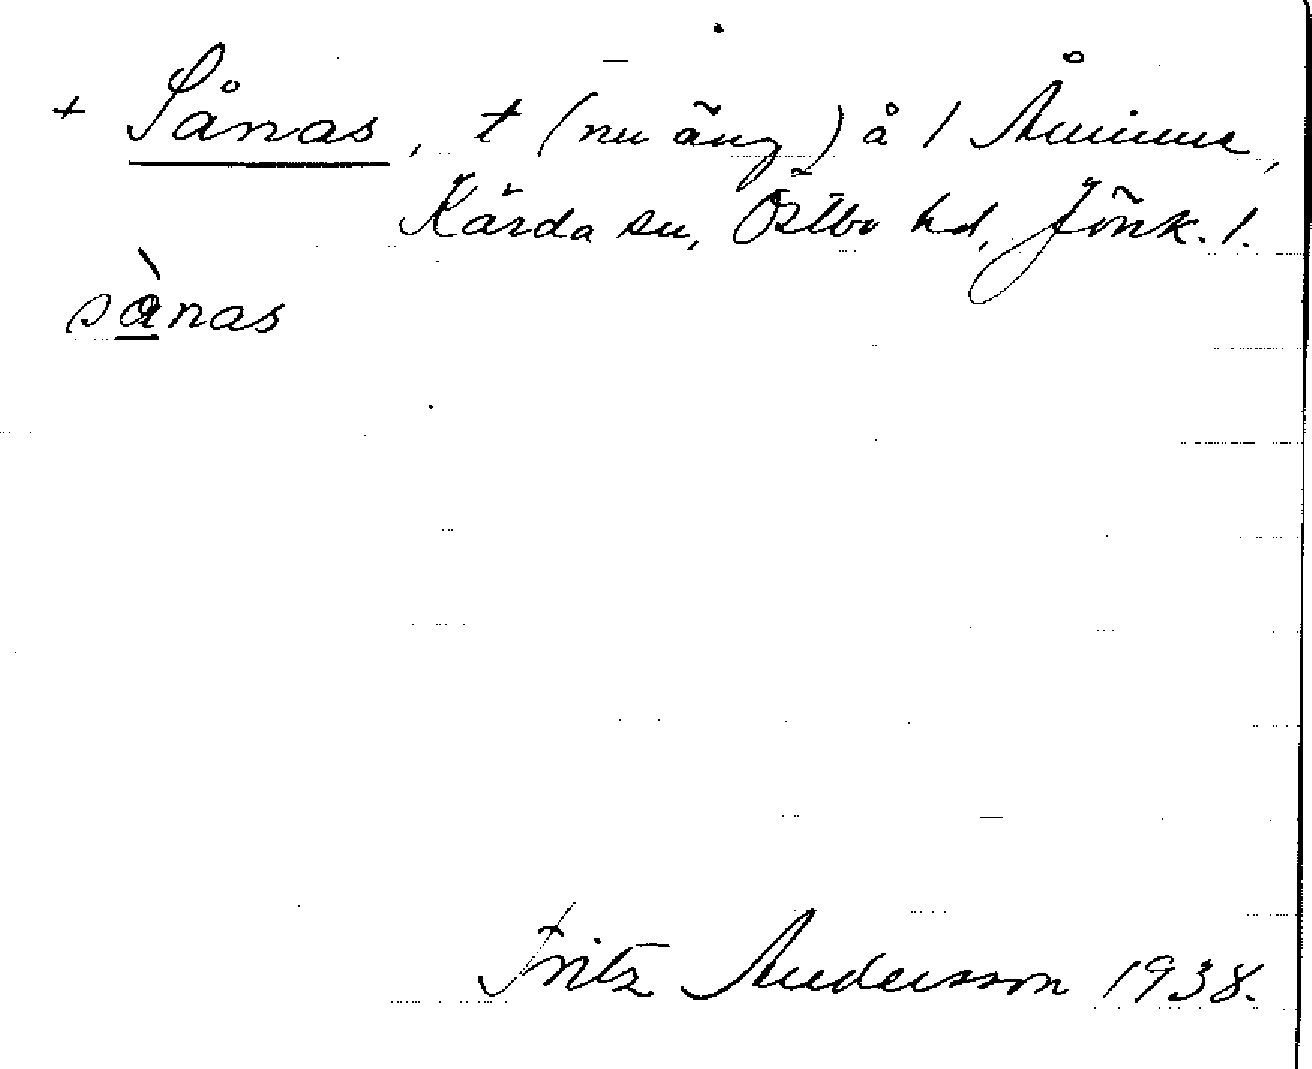 + Sånas, t (nu äng) å 1 Åminne,
Kärda sn, Östbo hd, Jönk. l.
sànas
Fritz Andersson 1938.